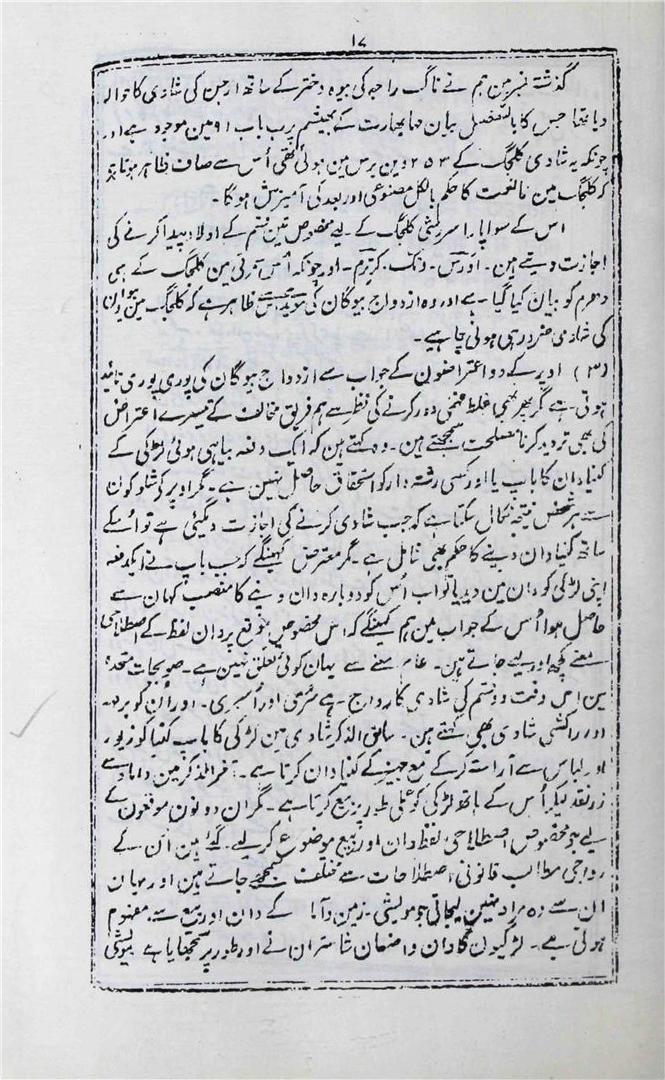 ۱۷
گذشتہ نمبر مین ہم نے ناگ راجہ کی بیوہ دختر کے ساتھ ارجن کی شادی کا حوالہ
دیا تھا جس کا بالتفصیل بیان مہا بھارت کے بھیشم پرب باب ۹۱ مین موجود ہے اور
چونکہ یہ شادی کلجگ کے ۲۵۳ وین برس مین ہوئی تھی اُس سے صاف ظاہر ہوتا ہے
کہ کلجگ مین ممانعت کا حکم بالکل مصنوعی اور بعد کی آمیزش ہوگا۔
اس کے سوا پاراسر رشی کلجگ کے لیے مخصوص تین قسم کے اولاد پیدا کرنے کی
اجازت دیتے ہین۔ اورس۔ دتک۔ کرتیم۔ اور چونکہ اُس سمرتی مین کلجگ کے ہی
دھرم کو بیان کیا گیا ہے اور وہ ازدواج بیوگان کی موید ہے اس سے ظاہر ہے کہ کلجگ مین بیواؤن
کی شادی ضرور ہی ہونی چاہیے۔
(۳) اوپر کے دو اعتراضون کے جواب سے ازدواج بیوگان کی پوری پوری تائید
ہوتی ہے مگر پھر بھی غلط فہمی دور کرنے کی نظر سے ہم فریق مخالف کے تیسرے اعتراض
کی بھی تردید کرنا مصلحت سمجھتے ہین۔ وہ کہتے ہین کہ ایک دفعہ بیاہی ہوئی لڑکی کے
کنیادان کا باپ یا اور کسی رشتہ دار کو استحقاق حاصل نہین ہے۔ مگر اوپر کی شلوکون
سے ہر شخص نتیجہ نکال سکتا ہے کہ جب شادی کرنے کی اجازت دیگئی ہے تو اُسکے
ساتھ کنیادان دینے کا حکم بھی شامل ہے۔ مگر معترض کہینگے کہ جب باپ نے ایکدفعہ
اپنی لڑکی کو دان مین دیدیا تو اب اُس کو دوبارہ دان دینے کا منصب کہان سے
حاصل ہوا اُس کے جواب مین ہم کہینگے کہ اس مخصوص موقع پر دان لفظ کے اصطلاحی
معنے کچھ اور لیے جاتے ہین۔ عام معنے سے یہان کوئی تعلق نہین ہے۔ صوبجات متحدہ
مین اس وقت دو قسم کی شادی کا رواج ہے شرتی اور اُسیری۔ اور اُن کو برہم
اور راکشی شادی بھی کہتے ہین۔ سابق الذکر شادی مین لڑکی کا باپ کنیا کو زیور
اور لباس سے آراستہ کرکے مع جہیز کے کنیادان کرتا ہے۔ آخرالذکر مین داماد سے
زر نقد لیکر اُس کے ہاتھ لڑکی کو عملی طور پر بیع کرتا ہے۔ مگر ان دونون موقعون کے
لیے جو مخصوص اصطلاحی لفظ دان اور بیع موضوع کرلیے گئے ہین اُن کے
رواجی مطالب قانونی اصطلاحات سے مختلف سمجھے جاتے ہین اور یہان
ان سے وہ مراد نہین لیجاتی جو مویشی۔ زمین وآبا کے دان اور بیع سے مفہوم
ہوتی ہے۔ لڑکیون کا دان واضعان شاستران نے اور طور پر سمجھایا ہے مویشی